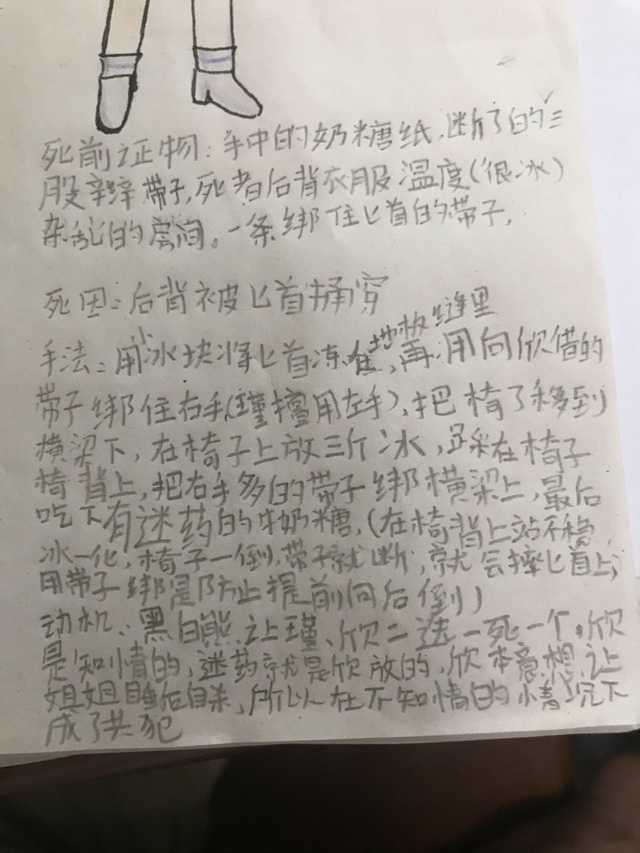 死前证物：手中的奶糖纸，断了的三
股辫带子，死者后背衣服温度（很冰）
杂乱的房间。一条绑住匕首的带子，
死因：后背被匕首捅穿
手法：用小冰块将匕首冻在地板缝里，再用向欣借的
带子绑住右手（瑾擅用左手），把椅子移到
横梁下，在椅子上放三个冰，踩在椅子
椅背上，把右手多的带子绑横梁上，最后
吃下有迷药的牛奶糖，（在椅背上站不稳，
冰一化，椅子一倒，带子就断，就会摔匕首上；
用带子绑是防止提前向后倒）
动机：黑白熊让瑾、欣二选一死一个。欣
是知情的，迷药就是欣放的，欣本意想让
姐姐睡后自杀，所以在不知情的情况下
成了共犯